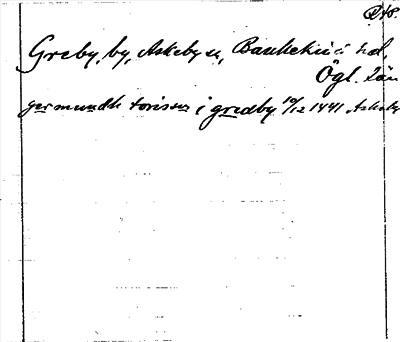 Greby, by, Askeby sn, Bankekinds hd,
Ögl. län
germundh torissus i gredby 19/12 1441 Askeby